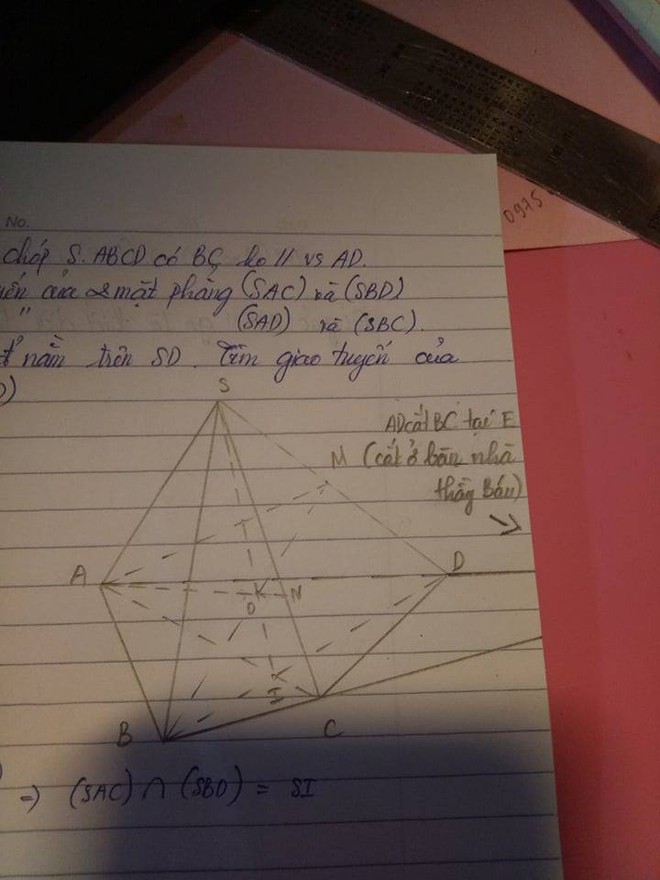 No.
0975
chóp S. ABCD có BC ko // vs AD.
của 2 mặt phẳng (SAC) và (SBD)
" (SAD) và (SBC).
nằm trên SD. Tìm giao tuyến của
S
AD cắt BC tại E
M (cắt ở bên nhà
thằng Báu)
A D
K N
O
I
B C
=> (SAC) ∩ (SBD) = SI